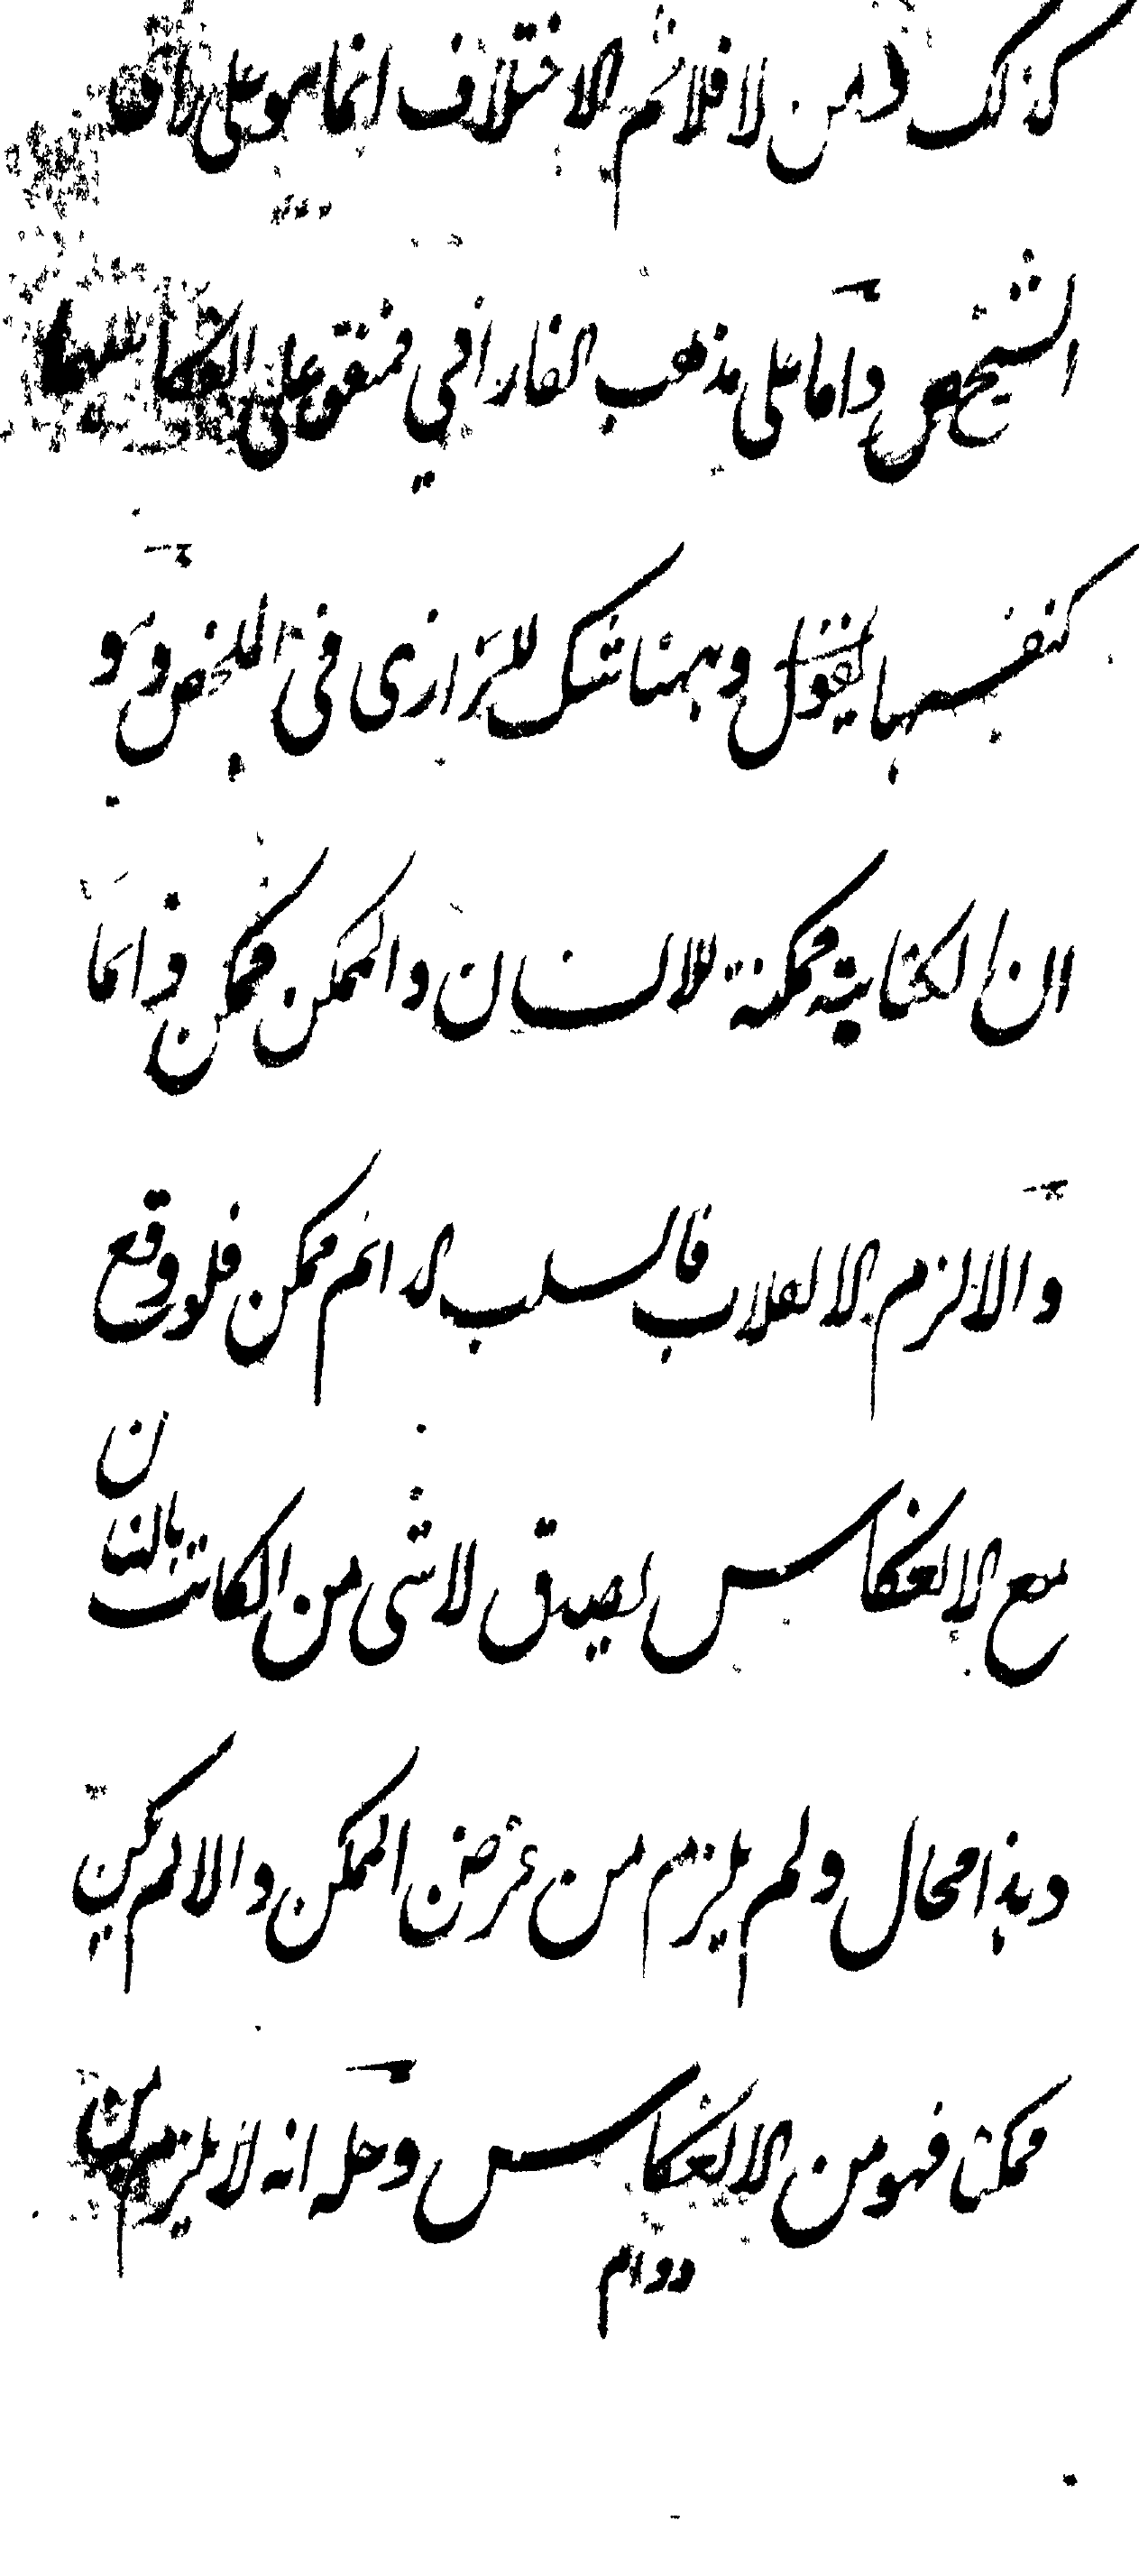 كذلك ومن لا فلا ثم الاختلاف انما هو على راى
الشيخ واما على مذهب الفارابي فمتفق على انعكاسهما
كنفسها يقول وههنا شك للرازى فى الملخص وهو
ان الكتابة ممكنة للانسان والممكن ممكن دائما
والا لزم الانقلاب فالسلب الدائم ممكن فلو وقع
مع الانعكاس يصدق لا شى من الكاتب بانسان
وهذا محال ولم يلزم من فرض الممكن والا لم يكن
ممكنا فهو من الانعكاس وحله انه لا يلزم من
دوام